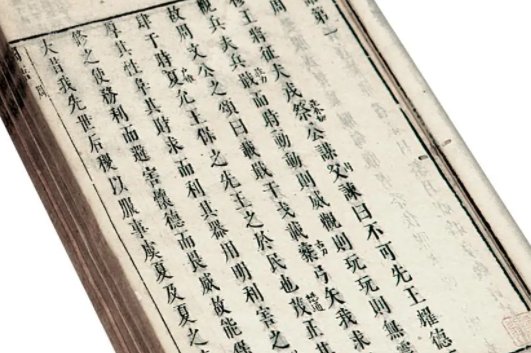 第一
周
王將征犬戎祭公謀父諫曰不可先王耀德
觀兵夫兵戢而時動動則威觀則玩玩則無
故周文公之頌曰載戢干戈載櫜弓矢我求
肆于時夏允王保之先王之於民也茂正其
厚其性阜其財求而利其器用明利害
脩之使務利而避害懷德而畏威故能保
大昔我先世后稷以服事虞夏及夏之